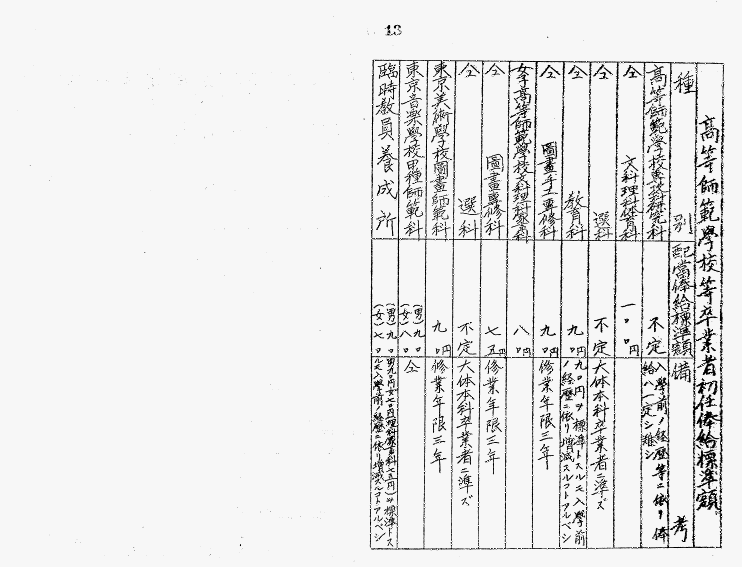 13
高等師範學校等卒業者初任俸給標準額
種別 配當俸給標準額 備考
高等師範學校專攻科研究科 不定 入學前ノ経歴等ニ依リ俸給ハ一定シ難シ
仝 文科理科体育科 一〇〇円
仝 選科 不定 大体本科卒業者ニ準ズ
仝 教育科 九〇円 九〇円ヲ標準トスルモ入學前ノ経歴ニ依リ増減スルコトアルベシ
仝 圖畫手工專修科 九〇円 修業年限三年
女子高等師範學校文科理科家事科 八〇円
仝 圖畫專修科 七五円 修業年限三年
仝 選科 不定 大体本科卒業者ニ準ズ
東京美術學校圖畫師範科 九〇円 修業年限三年
東京音樂學校甲種師範科 (男)九〇 (女)八〇 仝
臨時教員養成所 (男)九〇 (女)七〇 男九〇円女七〇円(理科家事科七五円)ヲ標準トスルモ入學前ノ経歴ニ依リ増減スルコトアルベシ